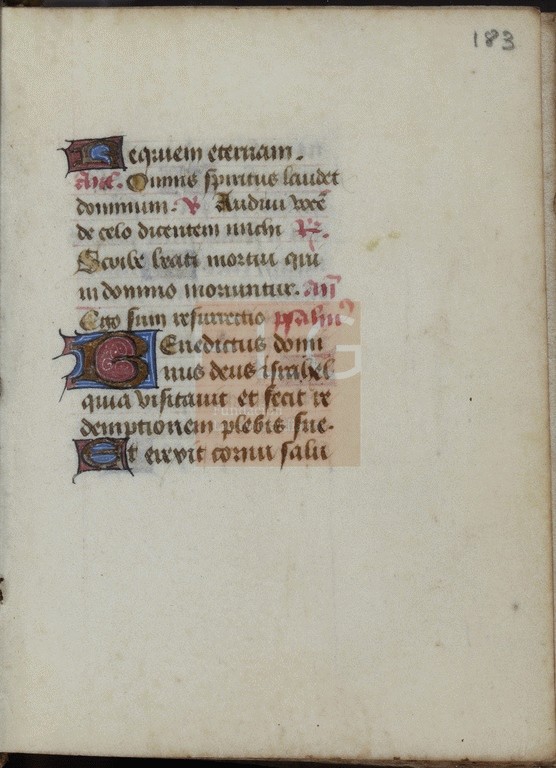 183
Requiem eternam.
Añt. Omnis spiritus laudet
dominum. V Audivi vocē
de celo dicentem michi R.
Scribe beati mortui qui
in domino moriuntur. Añ
Ego sum resurrectio psalm9
Benedictus domi
nus deus israhel
quia visitavit et fecit re
demptionem plebis sue.
Et erexit cornu salu